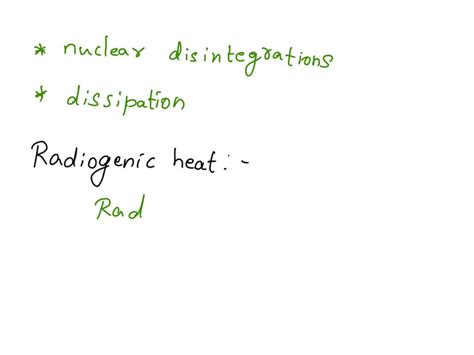 * nuclear disintegrations
* dissipation
Radiogenic heat:-
Rad